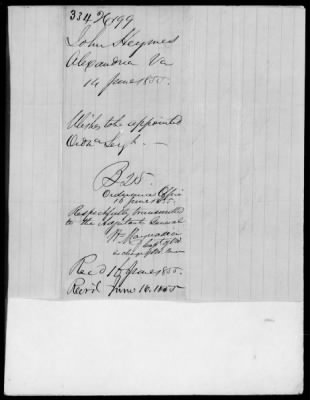 John Heymes
Alexandria Va
14 June 1855.
Wishes to be appointed
Ord. Sergt.
B 25.
Ordnance Office
16 June 1855.
Respectfully transmitted
to the Adjutant General
Capt. of Ord.
in charge
Rec'd 16 June 1855.
Rec'd June 16. 1855